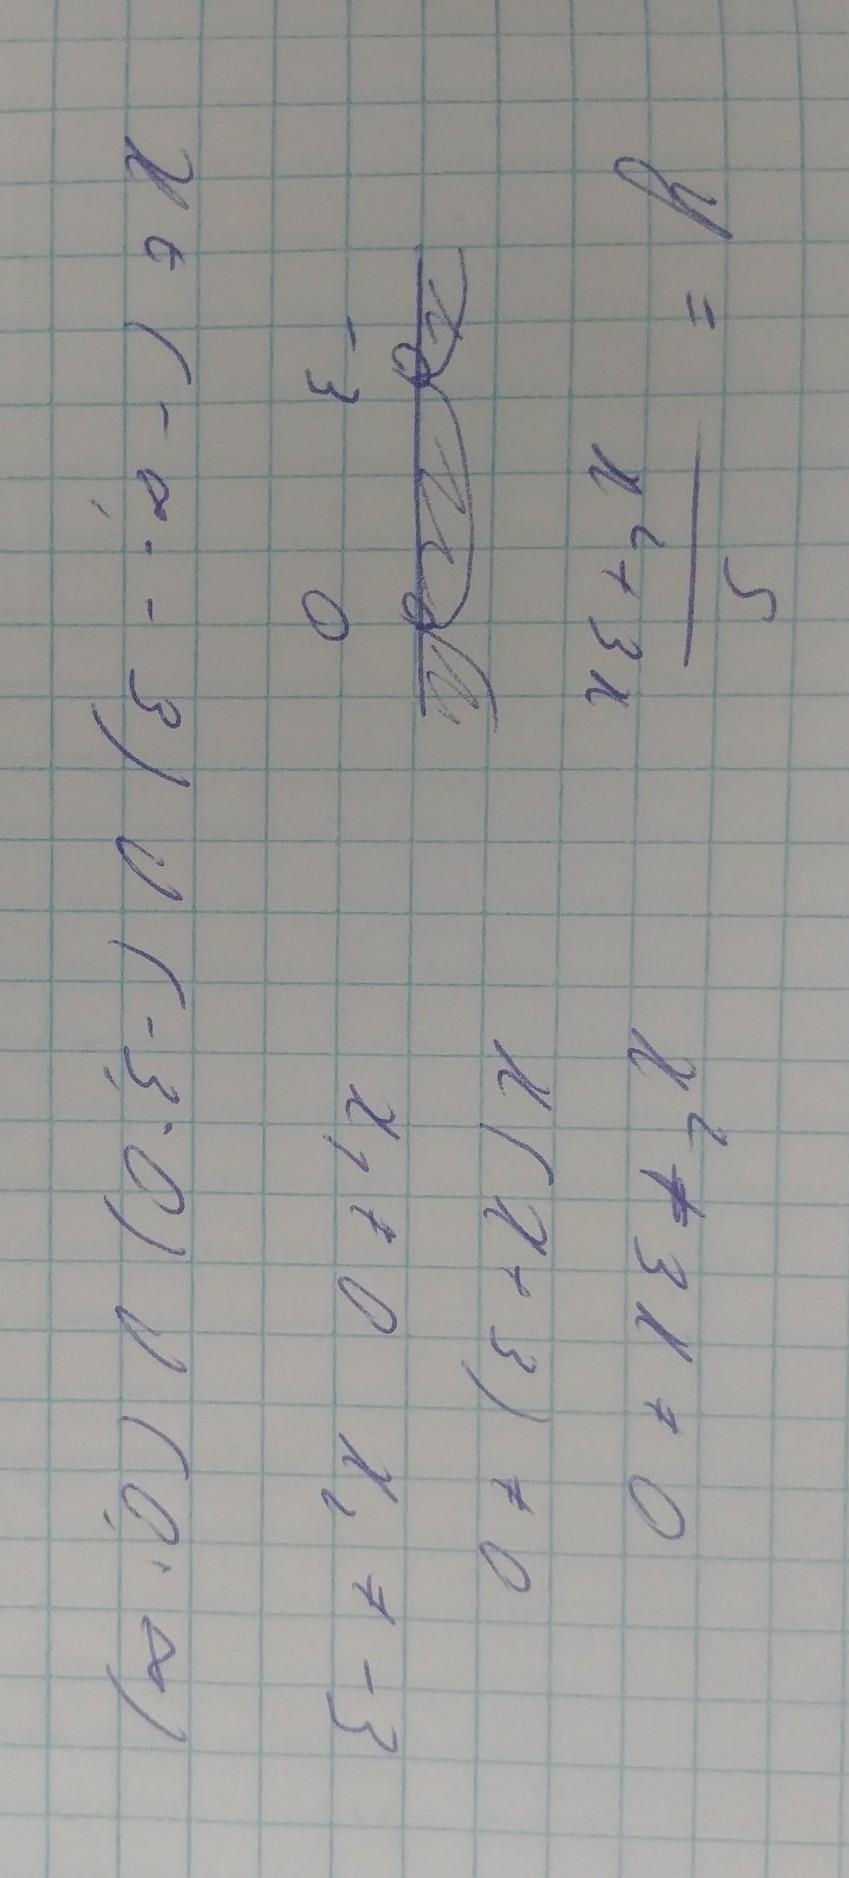 y = 5 / (x² + 3x)
x² + 3x ≠ 0
x(x+3) ≠ 0
x₁ ≠ 0 x₂ ≠ -3
-3 0
x ∈ (-∞; -3) ∪ (-3; 0) ∪ (0; ∞)